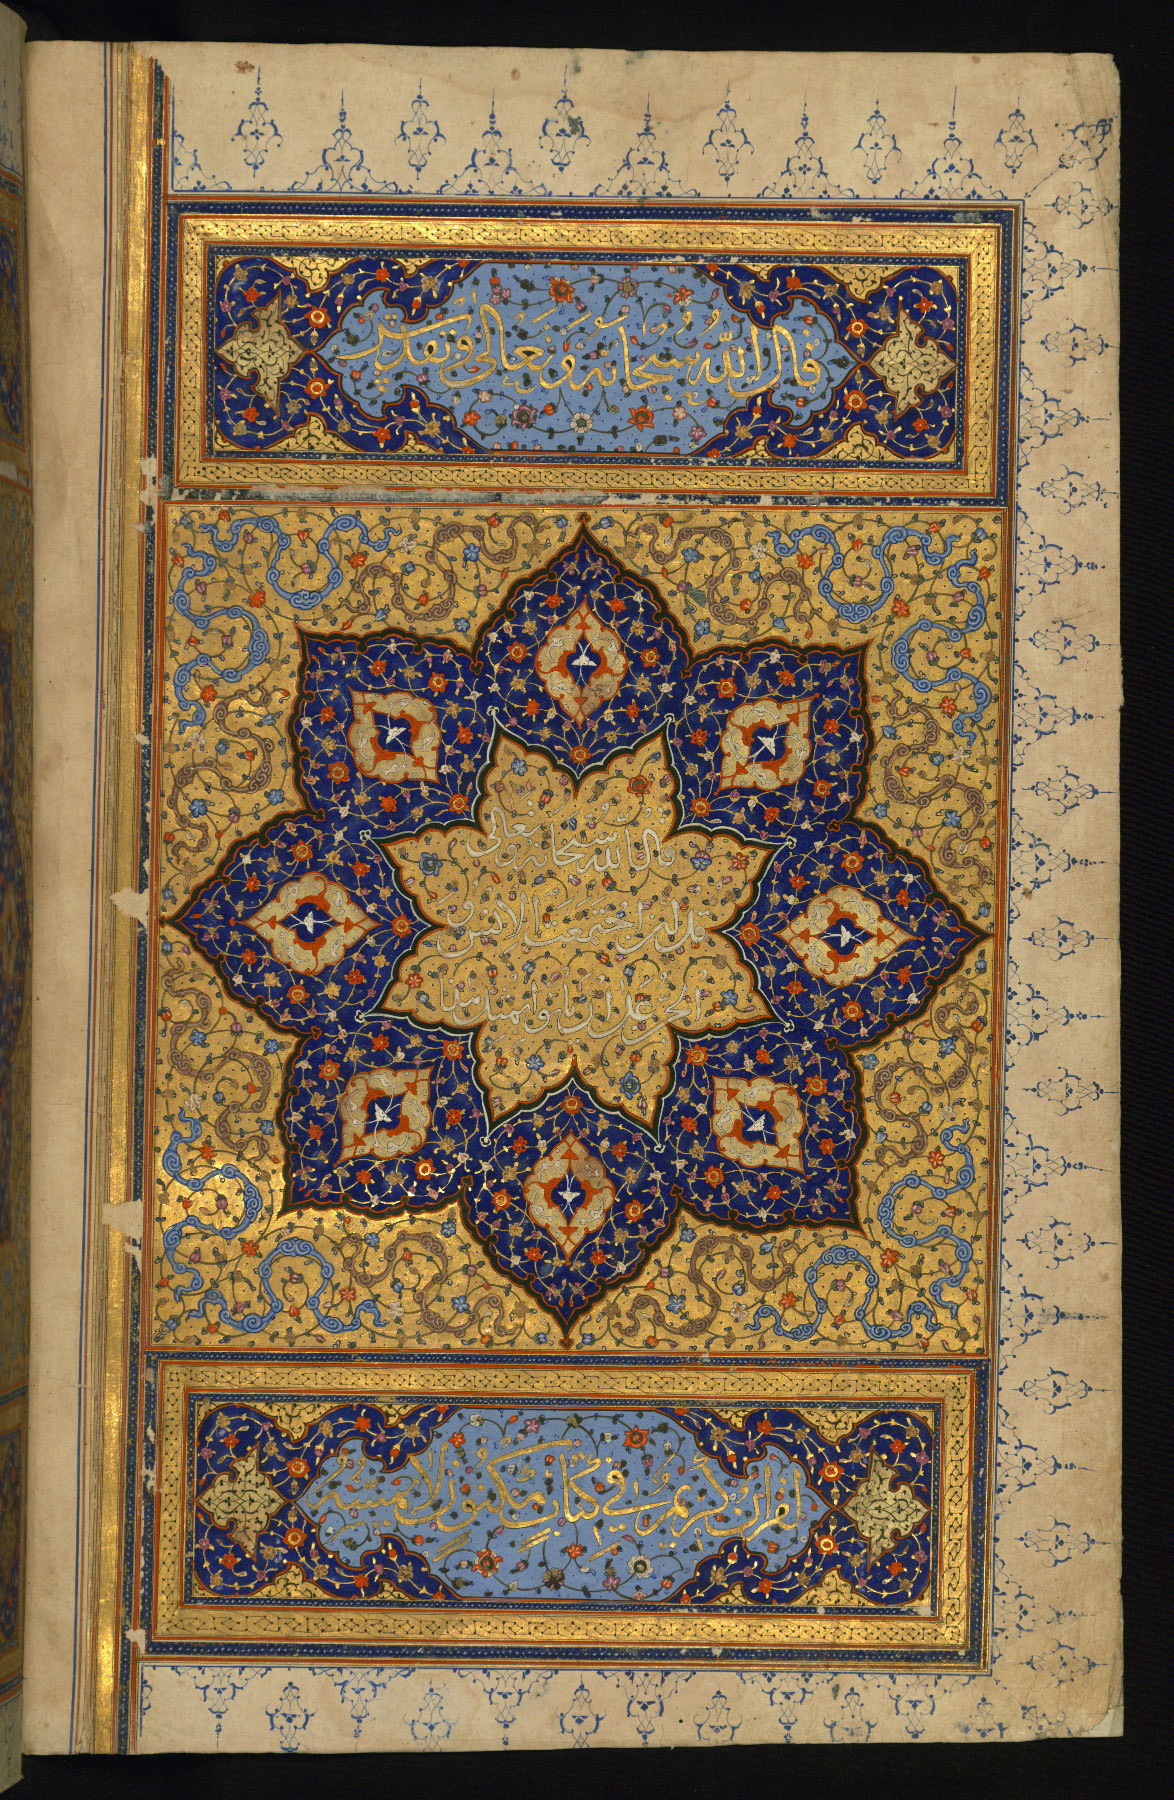 قال الله سبحانه وتعالى وتقدس
قال الله سبحانه وتعالى
قل لئن اجتمعت الانس و
الجن على ان ياتوا بمثل هذا
لقرآن كريم في كتاب مكنون لا يمسه